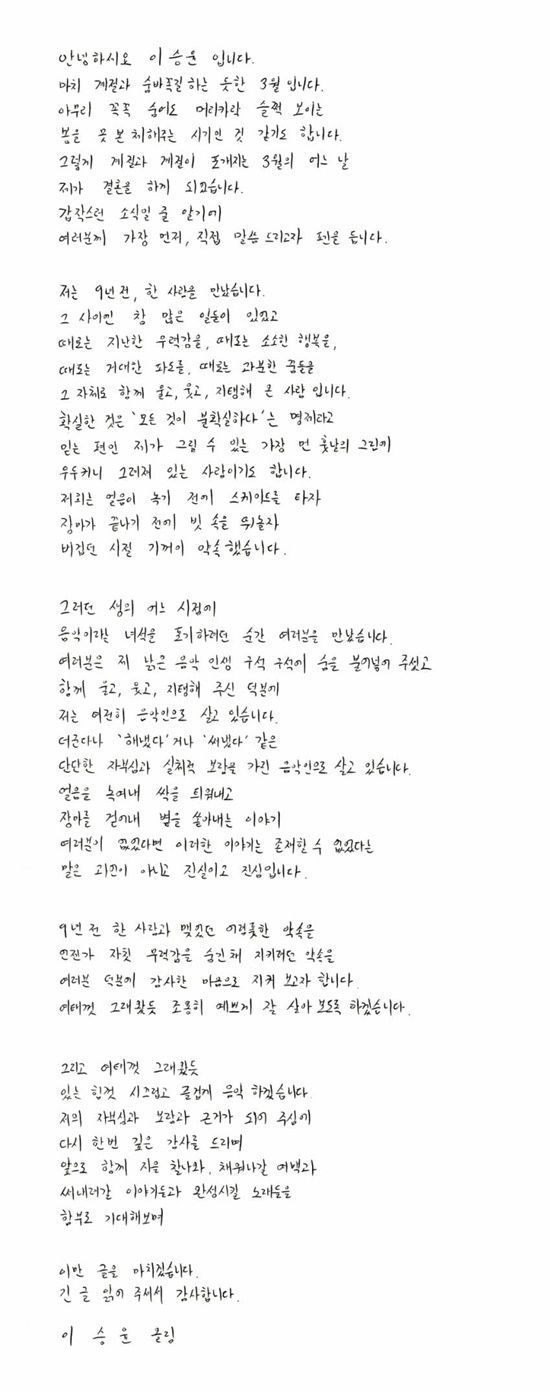 안녕하시오 이승윤 입니다.
마치 계절과 숨바꼭질 하는 듯한 3월 입니다.
아무리 꼭꼭 숨어도 머리카락 슬쩍 보이는
봄을 못 본 체해주는 시기인 것 같기도 합니다.
그렇게 계절과 계절이 포개지는 3월의 어느 날
제가 결혼을 하게 되었습니다.
갑작스런 소식일 줄 알기에
여러분께 가장 먼저, 직접 말씀 드리고자 펜을 듭니다.
저는 9년 전, 한 사람을 만났습니다.
그 사이엔 참 많은 일들이 있었고
때로는 지난한 무력감을, 때로는 소소한 행복을,
때로는 거대한 파도를, 때로는 과분한 꿈들을
그 자체로 함께 울고, 웃고, 지탱해 온 사람 입니다.
확실한 것은 '모든 것이 불확실하다'는 명제라고
믿는 편인 제가 그릴 수 있는 가장 먼 훗날의 그림에
우두커니 그려져 있는 사람이기도 합니다.
저희는 얼음이 녹기 전에 스케이트를 타자
장마가 끝나기 전에 빗 속을 뛰놀자
버겁던 시절 기꺼이 약속했습니다.
그러던 생의 어느 시점에
음악이라는 녀석을 포기하려던 순간 여러분을 만났습니다.
여러분은 제 낡은 음악 인생 구석 구석에 숨을 불어넣어 주셨고
함께 울고, 웃고, 지탱해 주신 덕분에
저는 여전히 음악인으로 살고 있습니다.
더군다나 '해냈다'거나 '써냈다' 같은
단단한 자부심과 실체적 보람을 가진 음악인으로 살고 있습니다.
얼음을 녹여내 싹을 틔워내고
장마를 걷어내 볕을 쏟아내는 이야기
여러분이 없었다면 이러한 이야기는 존재할 수 없었다는
말은 과언이 아니고 진실이고 진심입니다.
9년 전 한 사람과 맺었던 어렴풋한 약속을
언젠가 자칫 무력감을 숨긴 채 지키려던 약속을
여러분 덕분에 감사한 마음으로 지켜 보고자 합니다.
여태껏 그래왔듯 조용히 예쁘게 잘 살아 보도록 하겠습니다.
그리고 여태껏 그래왔듯
있는 힘껏 시끄럽고 즐겁게 음악 하겠습니다.
저의 자부심과 보람과 근거가 되어 주심에
다시 한번 깊은 감사를 드리며
앞으로 함께 지을 찰나와, 채워나갈 여백과
써내려갈 이야기들과 완성시킬 노래들을
함부로 기대해보며
이만 글을 마치겠습니다.
긴 글 읽어 주셔서 감사합니다.
이 승 윤 올림